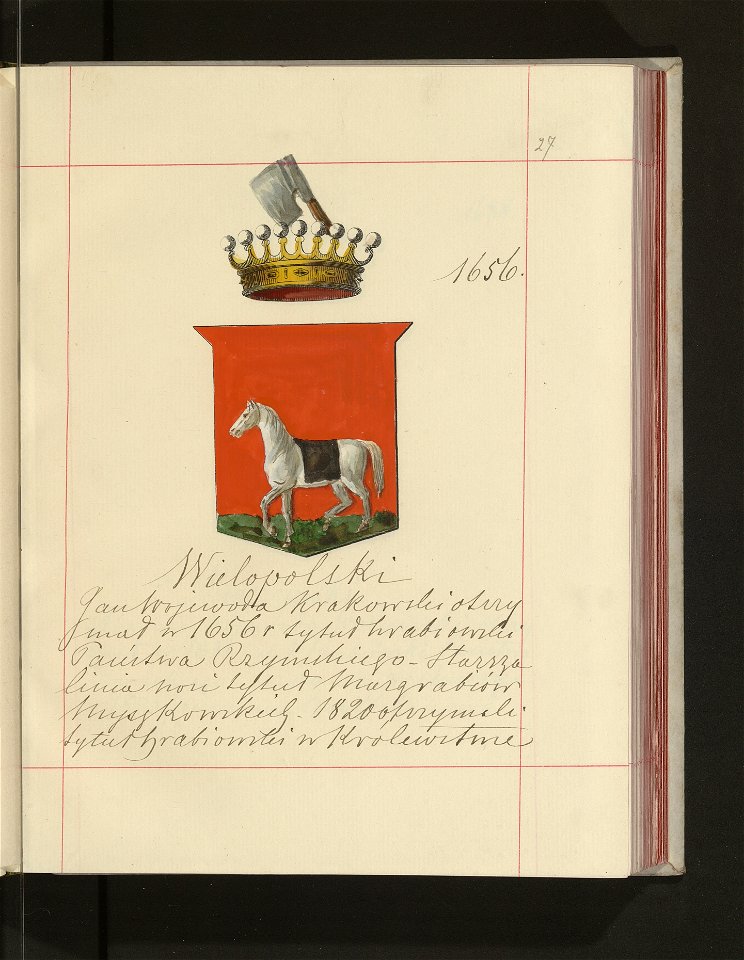 27
1656.
Wielopolski
Jan Wojewoda Krakowski otrzy
mał w 1656 r tytuł hrabiowski
Państwa Rzymskiego - Starsza
linia nosi tytuł Margrabiów
Myszkowskich. 1820 otrzymali
tytuł hrabiowski w Królewstwie